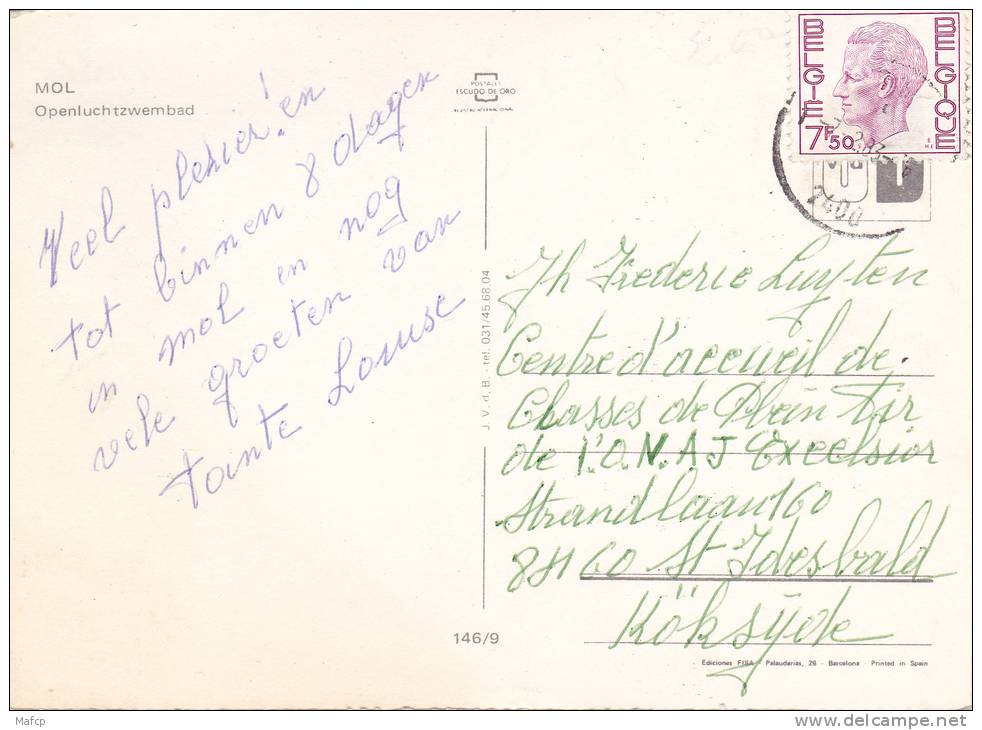 MOL
Openluchtzwembad
Veel plezier! en
tot binnen 8 dagen
in mol en nog
vele groeten van
tante Louise
POSTALES
ESCUDO DE ORO
REGISTRO INTERNACIONAL
J. V. d. B. - tel. 031/45.68.04
146/9
BELGIE
BELGIQUE
7F50
2400
Jh Frederic Luyten
Centre d'accueil de
Classes de Plein Air
de l'O.N.A.J Excelsior
Strandlaan 160
8460 St Idesbald
Köksÿde
Ediciones FISA - Palaudarias, 26 - Barcelona - Printed in Spain
Mafcp
www.delcampe.net